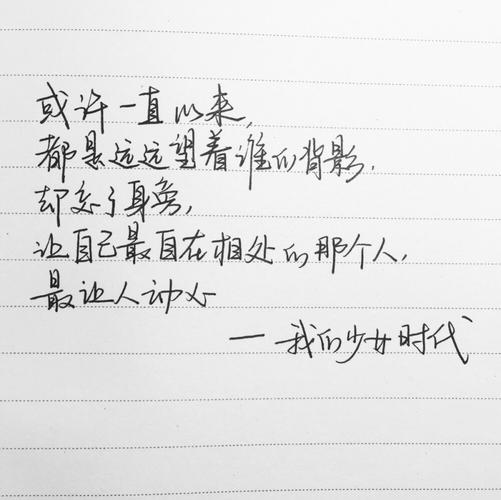 或许一直以来,
都是远远望着谁的背影,
却忘了身旁,
让自己最自在相处的那个人,
最让人动心
— 我的少女时代